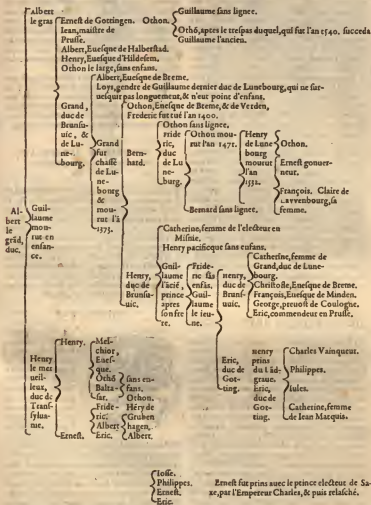 Albert
le gras
Ernest de Gottingen. Othon.
Guillaume sans ligne.
Othõ, apres le trespas duquel, qui fut l'an 1540. succeda
Guillaume l'ancien.
Iean, maistre de
Prusse.
Albert, Euesque de Halberstad.
Henry, Euesque d'Hildesem.
Othon le large, sans enfans.
Grand,
duc de
Brunsu-
uic, &
de Lu
ne-
bourg.
Albert, Euesque de Breme.
Loys, gendre de Guillaume dernier duc de Lunebourg, qui ne sur-
uesquit pas longuement, & n'eut point d'enfans.
Grand
fut
chassé
de Lu-
ne-
bourg
&
mou-
rut l'ã
1373.
Othon, Euesque de Breme, & de Verden,
Frederic fut tué l'an 1400.
Bern-
hard.
Othon sans lignee.
Fride
ric,
duc
de Lu
ne-
burg.
Othon mou-
rut l'an 1471.
Henry
de Lune
bourg
mourut
l'an
1532.
Othon.
Ernest gouuer-
neur.
François, Claire de
Lavvenbourg, sa
femme.
Bernard sans lignee.
Al-
bert
le
grãd,
duc.
Guil-
laume
mou-
rut en
enfan-
ce.
Henry,
duc de
Brunsu-
uic.
Catherine, femme de l'electeur en
Misnie.
Henry pacifique sans enfans.
Guil-
laume
l'aisé,
prince
apres
son fre
re.
Fride-
ric sãs
enfãs.
Guil-
laume
le ieu-
ne.
Henry,
duc de
Brunf-
uic.
Catherine, femme de
Grand, duc de Lune-
bourg.
Christofle, Euesque de Breme.
François, Euesque de Minden.
George, preuost de Coulogne.
Eric, commendeur en Prusse.
Eric,
duc de
Got-
ting.
Henry
prins
du Lãd-
graue.
Eric,
duc
de
Got-
ting.
Charles Vainqueur.
Philippes.
Iules.
Catherine, femme
de Iean Macquis.
Henry
le mer
ueil-
leux,
duc de
Transf-
sylua-
nie.
Henry.
Mel-
chior,
Eues-
que.
Othõ
Balta-
sar.
sans en-
fans.
Othon.
Ernest.
Fride-
ric.
Albert
Eric.
Héry de
Gruben
hagen.
Albert.
Iosse.
Philippes.
Ernest.
Eric.
Ernest fut prins auec le prince electeur de Sa-
xe, par l'Empereur Charles, & puis relasché.